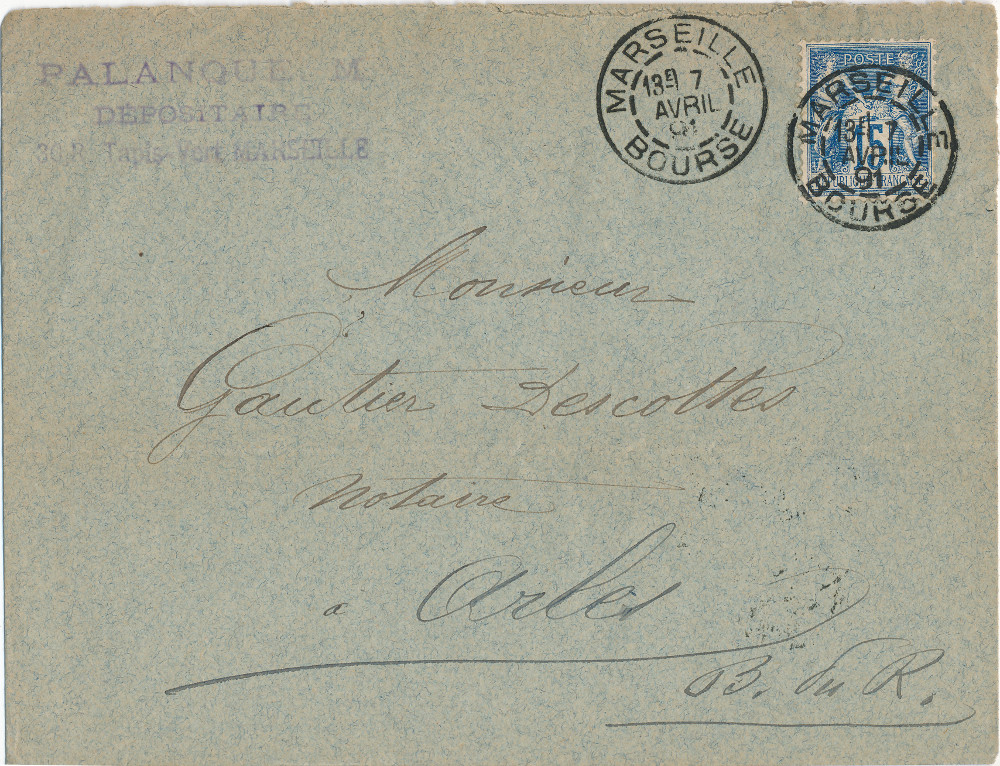 PALANQUE M
DÉPOSITAIRE
30 R. Tapis Vert MARSEILLE
MARSEILLE
13E 7
AVRIL
91
BOURSE
POSTE
15
RÉPUBLIQUE FRANÇAISE
MARSEILLE
13E 7
AVRIL
91
BOURSE
Monsieur
Gautier Descottes
Notaire
à Arles
B. du R.